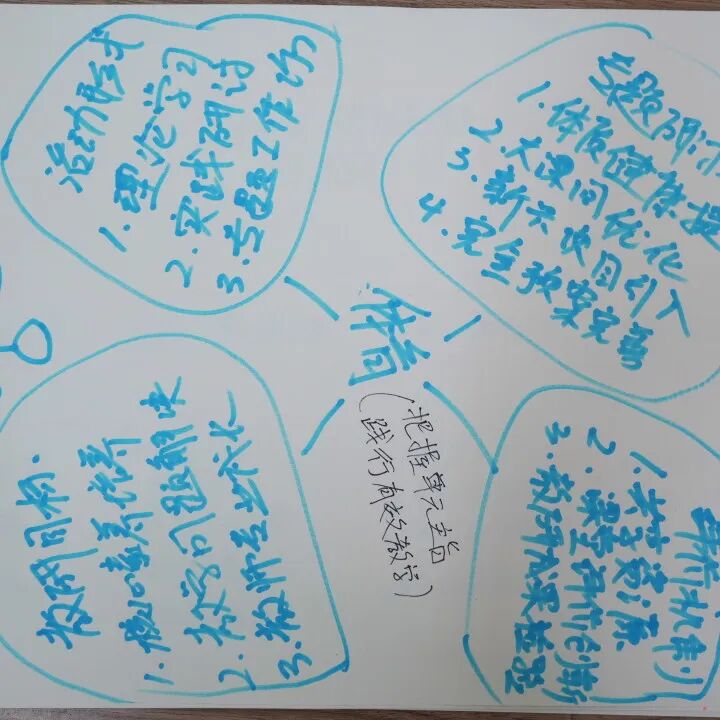 体育
(把握单元主旨
践行有效教学)
活动形式
1. 理论学习
2. 实践研讨
3. 专题工作坊
专题研讨
1. 体质健康提
2. 大课间优化
3. 新兴项目引入
4. 完全预案完善
教研目标.
1. 核心素养培养
2. 教学问题解决
3. 教师专业成长
1. 共享资源
2. 课堂评价创新
3. 教研成果检验